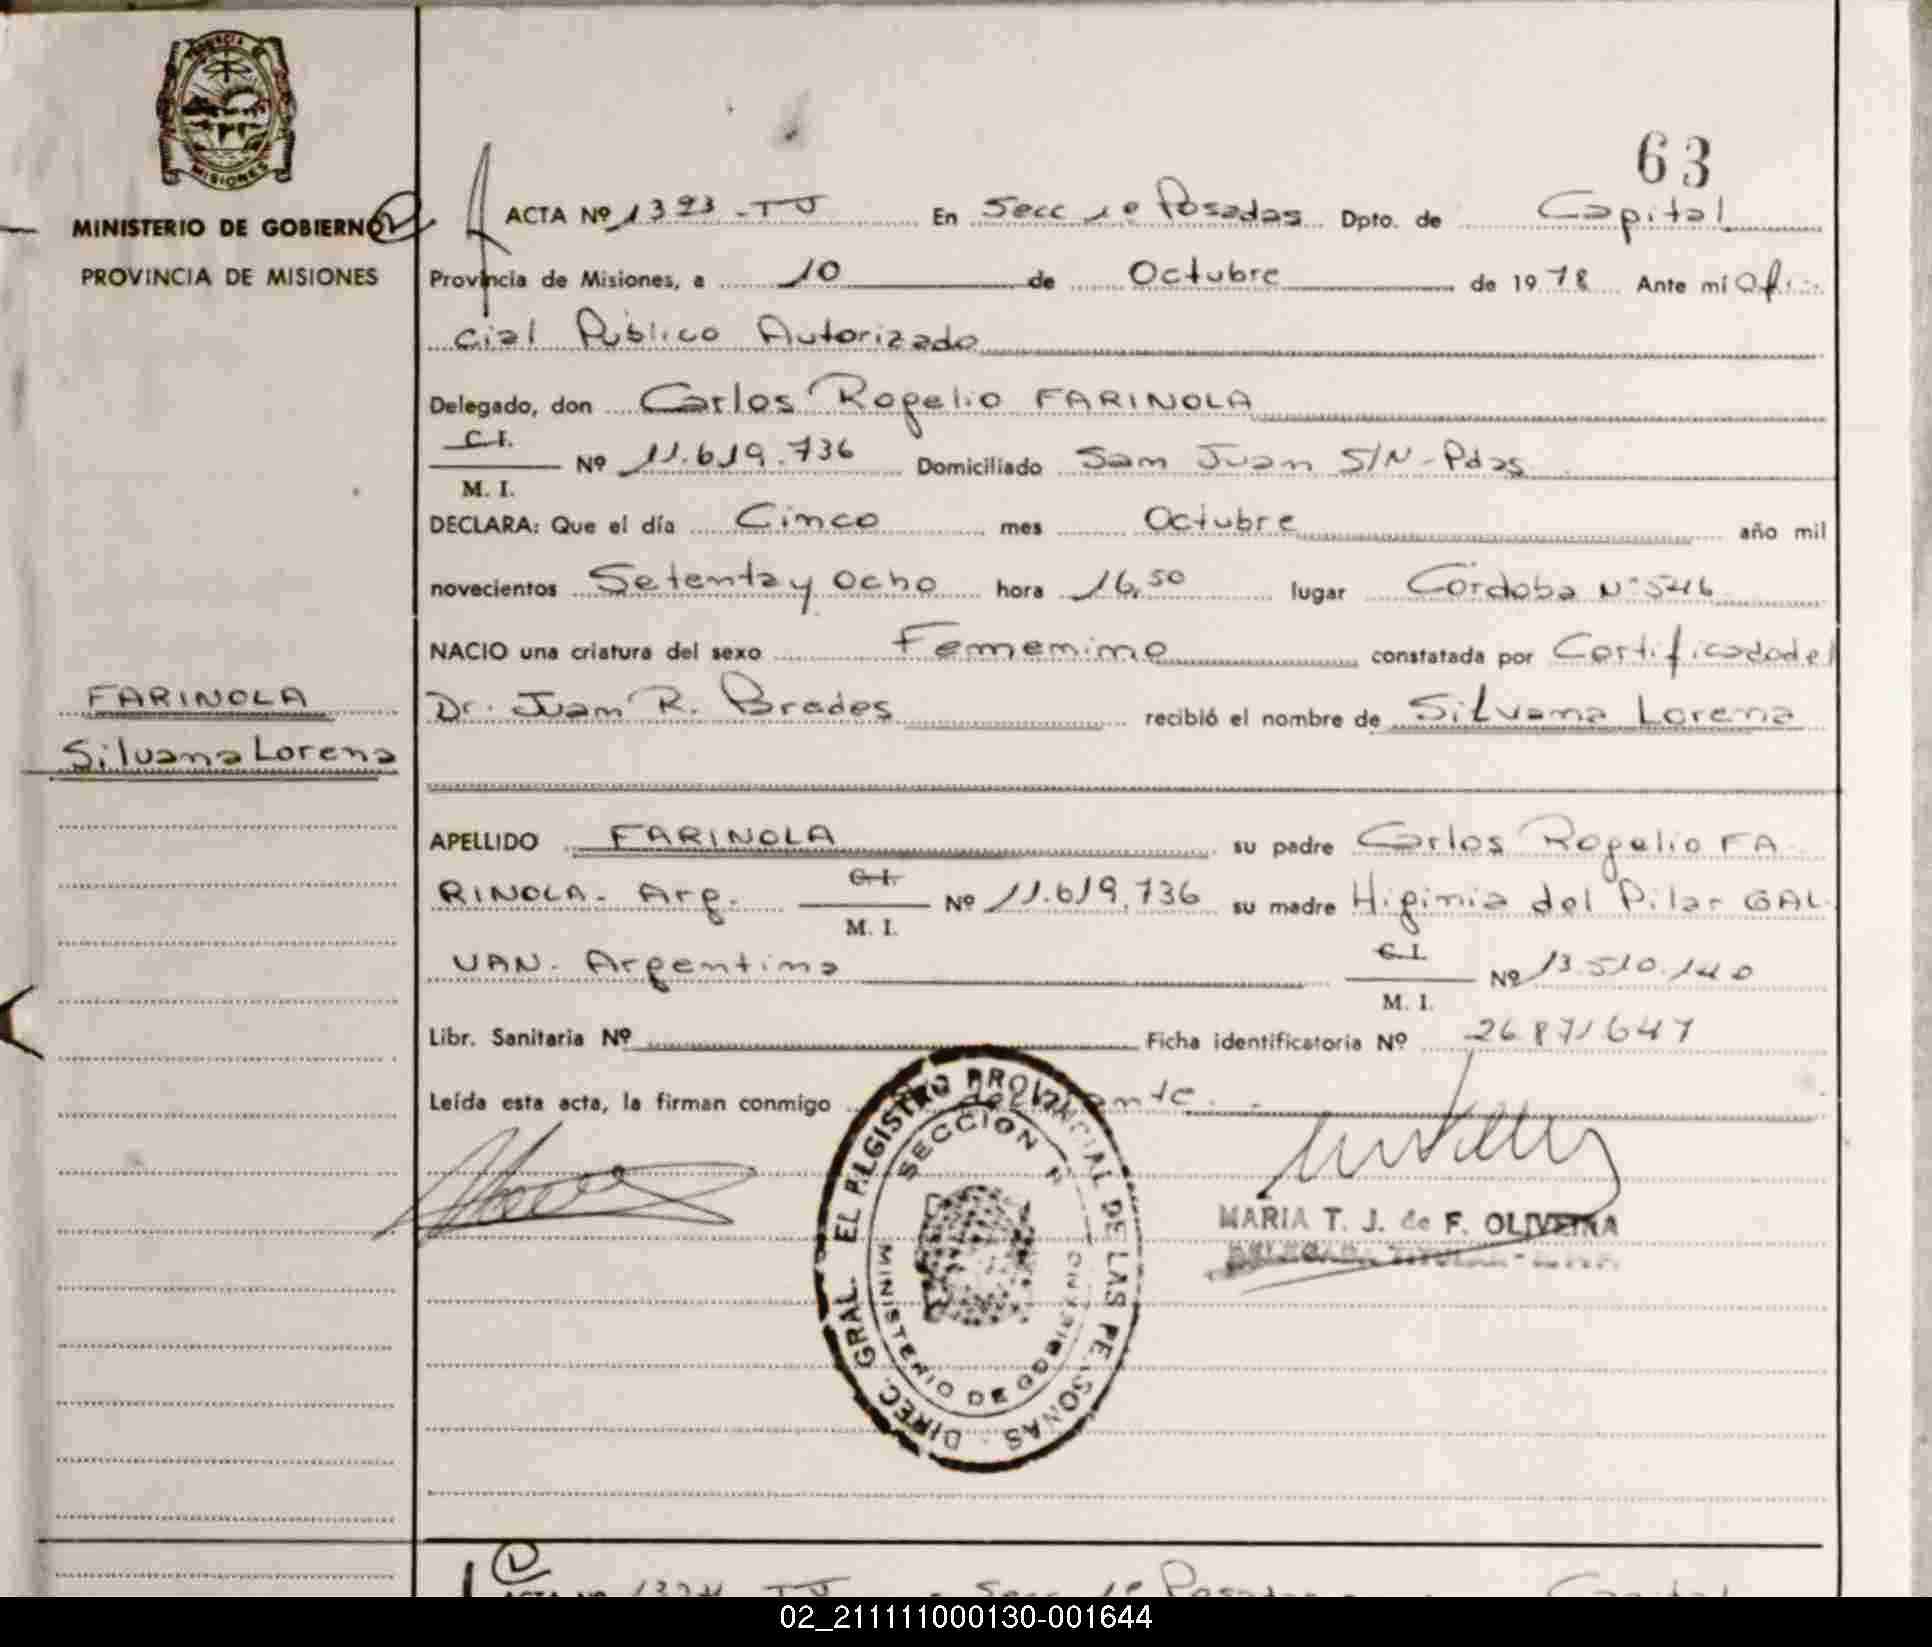 PROVINCIA DE
MISIONES
MINISTERIO DE GOBIERNO
PROVINCIA DE MISIONES
63
ACTA Nº 1393 - TJ En Secc 1º Posadas Dpto. de Capital
Provincia de Misiones, a 10 de Octubre de 1978 Ante mí Ofi-
cial Público Autorizado
Delegado, don Carlos Rogelio FARINOLA
C. I.
Nº 11.619.736 Domiciliado San Juan S/N - Pdas
M. I.
DECLARA: Que el día Cinco mes Octubre año mil
novecientos Setenta y ocho hora 16,50 lugar Córdoba Nº 546
NACIO una criatura del sexo Femenino constatada por Certificado del
Dr. Juan R. Brades recibió el nombre de Silvana Lorena
FARINOLA
Silvana Lorena
APELLIDO FARINOLA su padre Carlos Rogelio FA-
C. I.
RINOLA - Arg. Nº 11.619.736 su madre Higinia del Pilar GAL-
M. I.
VAN - Argentina
C. I.
Nº 13.510.140
M. I.
Libr. Sanitaria Nº Ficha identificatoria Nº 26871647
Leída esta acta, la firman conmigo
DIREC. GRAL. EL REGISTRO PROVINCIAL DE LAS PERSONAS
SECCION
MINISTERIO DE GOBIERNO
MARIA T. J. de F. OLIVEIRA
ACTA Nº TJ Secc 1º Posadas Capital
02_211111000130-001644